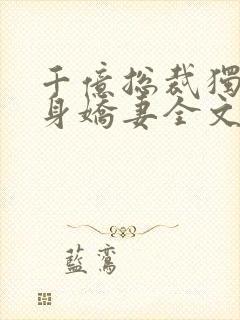 千億总裁獨
身嬌妻全文
藍鸾